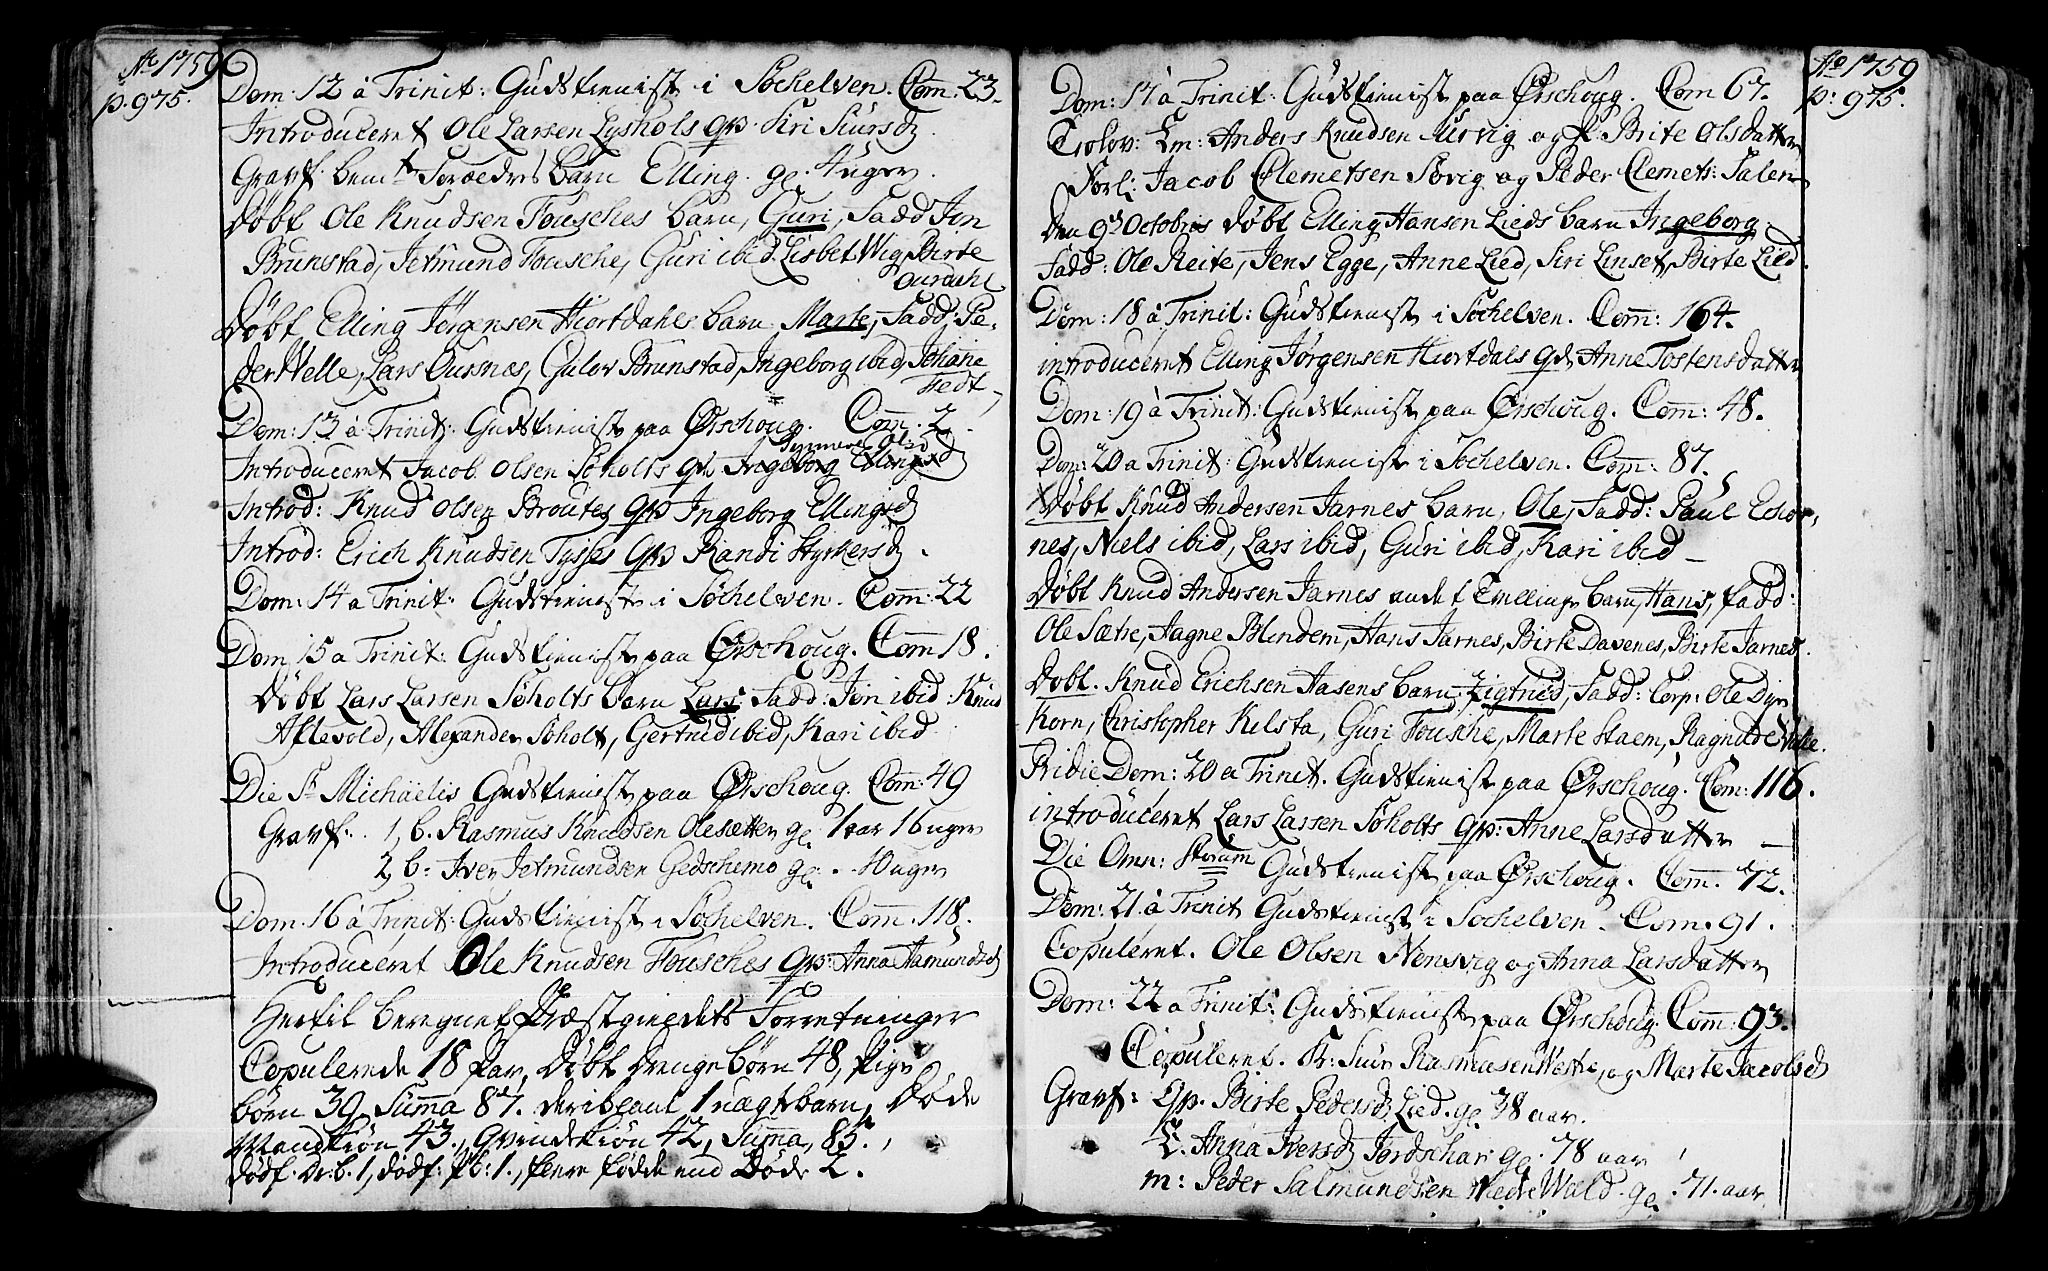 Ao 1759
p. 975.
Dom. 12 a Trinit: Gudstienist i Söchelven. Com: 23.
Introduceret Ole Larsen Lyshols qv: Siri Siursd
Gravf: bemte Foræedres barn Elling. gl. 4 uger.
Döbt Ole Knudsen Fousches barn, Guri, Fadd Jon
Brunstad, Jetmund Fousche, Guri ibid. Lisbet Wig, Birte
Ourdahl
Döbt Elling Jörgensen Hiortdahls barn Marte, Fadd: Pe-
der Welle, Lars Oursnes, Gulov Brunstad, Ingeborg ibid, Johane
Tredt
Dom: 13 a Trinit: Gudstienist paa Örschoug. Com. 2.
Introduceret Jacob Olsen Söholts qv. Ingeborg Ellingsd
Introd: Knud Olsen Broutes qv Ingeborg Ellingsd
Introd: Erich Knudsen Tysses qv Randi Styrkersd.
Dom: 14 a Trinit: Gudstieneste i Söchelven. Com: 22
Dom, 15 a Trinit: Gudstienist paa Örschoug. Com 18.
Döbt Lars Larsen Söholts barn Lars, Fadd: Jon ibid. Knud
Aflevold, Alexander Söholt, Gertrud ibid, Kari ibid.
Die St Michaelis Gudstienist paa Örschoug. Com: 49
Gravf: 1, b. Rasmus Knudsen Olesætter gl. 1 aar 16 uger
2, b: Iver Jetmundsen Gedschemo gl: 10 uger
Dom. 16 a Trinit: Gudstienist i Söchelven. Com. 118.
Introduceret Ole Knudsen Fousches qv: Anna Aamundsd
Hertil beregnet Præstgieldets Forretninger
Copulerede 18 Par, Döbt drengebörn 48, Pige
börn 39, Summa 87. deriblant 1 uægte barn, Döde
Mandkiön 43., Qvindekiön 42, Summa, 85.,
dödf. Dr. b. 1, dödf: Pb: 1., flere födde end Döde 2.
Ao 1759
p: 975.
Dom: 17 a Trinit: Gudstienist paa Örschoug. Com 67.
Trolov: Em: Anders Knudsen Urvig og P: Brite Olsdatter
Forl: Jacob Clemetsen Sövig og Peder Clemets: Salen
Den 9de Octobris döbt Elling Hansen Lieds barn Ingeborg
Fadd: Ole Reite, Jens Egge, Anne Lied, Siri Linset, Birte Lied.
Dom: 18 a Trinit: Gudstienist i Söchelven. Com: 164.
introduceret Elling Jörgensen Hiortdals qv Anne Tostensdatter
Dom: 19 a Trinit: Gudstienist paa Örschoug. Com: 48.
Dom: 20 a Trinit: Gudstieniste i Söchelven. Com: 87.
Döbt Knud Andersen Jarnes barn, Ole, Fadd: Paul Echor-
nes, Niels ibid, Lars ibid, Guri ibid, Kari ibid
Döbt Knud Andersen Jarnes andet Tvillinge barn, Hans, fadd:
Ole Sætre, Aagne Blindem, Hans Jarnes, Birte Davenes, Birte Jarnes.
Döbt. Knud Erichsen Aasens barn, Zigtrud, Fadd: Corp: Ole Dyr-
korn, Christopher Kilsta, Guri Fousche, Marte Staem, Ragnilde Velle.
Pridie Dom: 20 a Trinit. Gudstienist paa Örschoug. Com: 116.
introduceret Lars Larsen Söholts qv: Anne Larsdatter
Die Omn: Storum Gudstienist paa Örschoug. Com. 72.
Dom: 21 a Trinit Gudstienist i Söchelven. Com. 91.
Copuleret. Ole Olsen Nensvig og Anna Larsdatter
Dom: 22 a Trinit: Gudstienist paa Örschoug. Com: 93.
Copuleret. K: Siur Rasmusen Wette, og Marte Jacobsd
Gravf: Qv. Birte Pedersd Lied. gl. 38 aar.
E. Anna Iversd Jordschar gl. 78 aar
m: Peder Salmundsen Nedre Wald. gl. 71. aar